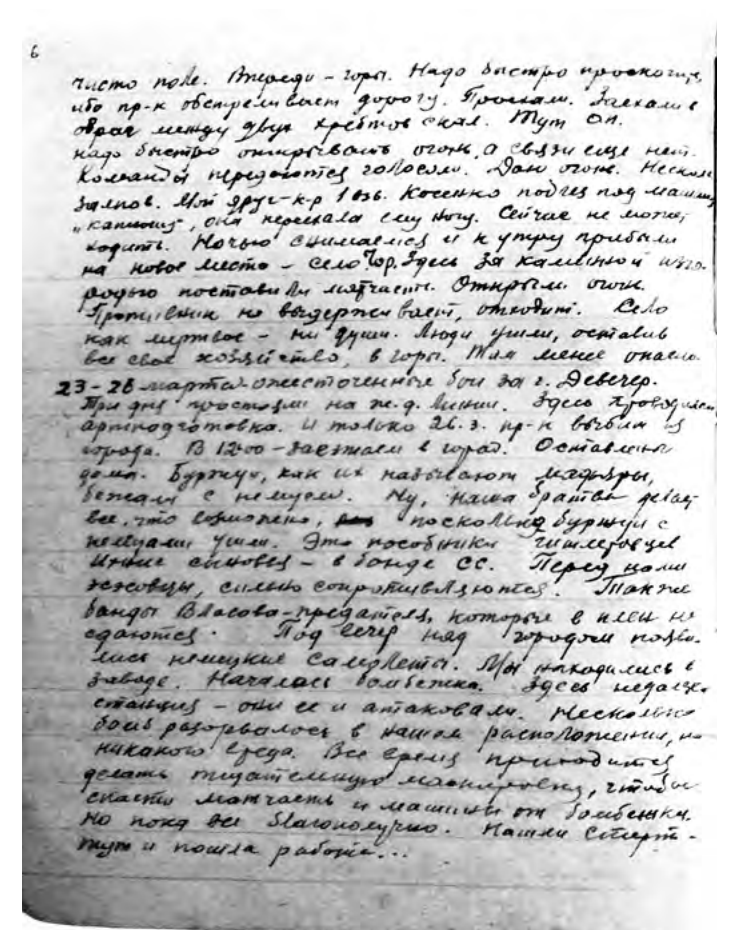 6
чисто поле. Впереди – горы. Надо быстро проскочить,
ибо пр-к обстреливает дорогу. Проехали. Заехали в
овраг между двух хребтов скал. Тут ОП.
надо быстро открывать огонь, а связи еще нет.
Команды передаются голосом. Даю огонь. Несколь
залпов. Мой друг – к-р 1 взв. Косенко подлез под машину
„катюшу", она переехала ему ногу. Сейчас не может
ходить. Ночью снимаемся и к утру прибыли
на новое место – село Чор. Здесь за каменной изго-
родью поставили матчасть. Открыли огонь.
Противник не выдерживает, отходит. Село
как мертвое – ни души. Люди ушли, оставив
все свое хозяйство, в горы. Там менее опасно.
23-26 марта – ожесточенные бои за г. Девечер.
Три дня простояли на ж.д. линии. Здесь проводилась
артподготовка. И только 26.3. пр-к выбили из
города. В 12-00 – заезжаем в город. Оставлены
дома. Буржуи, как их называют мадьяры,
бежали с немцем. Ну, наша братва делает
все, что возможно, поскольку буржуи с
немцами ушли. Это пособники гитлеровцев
Иные сыновья – в банде СС. Перед нами
эсэсовцы, сильно сопротивляются. Также
банды Власова-предателя, которые в плен не
сдаются. Под вечер над городом появи-
лись немецкие самолеты. Мы находились в
заводе. Началась бомбежка. Здесь недалеко
станция – они ее и атаковали. Несколько
бомб разорвалось в нашем расположении, но
никакого вреда. Все время приходится
делать тщательную маскировку, чтобы
спасти матчасть и машины от бомбежки.
Но пока все благополучно. Нашли спирт –
тут и пошла работа...